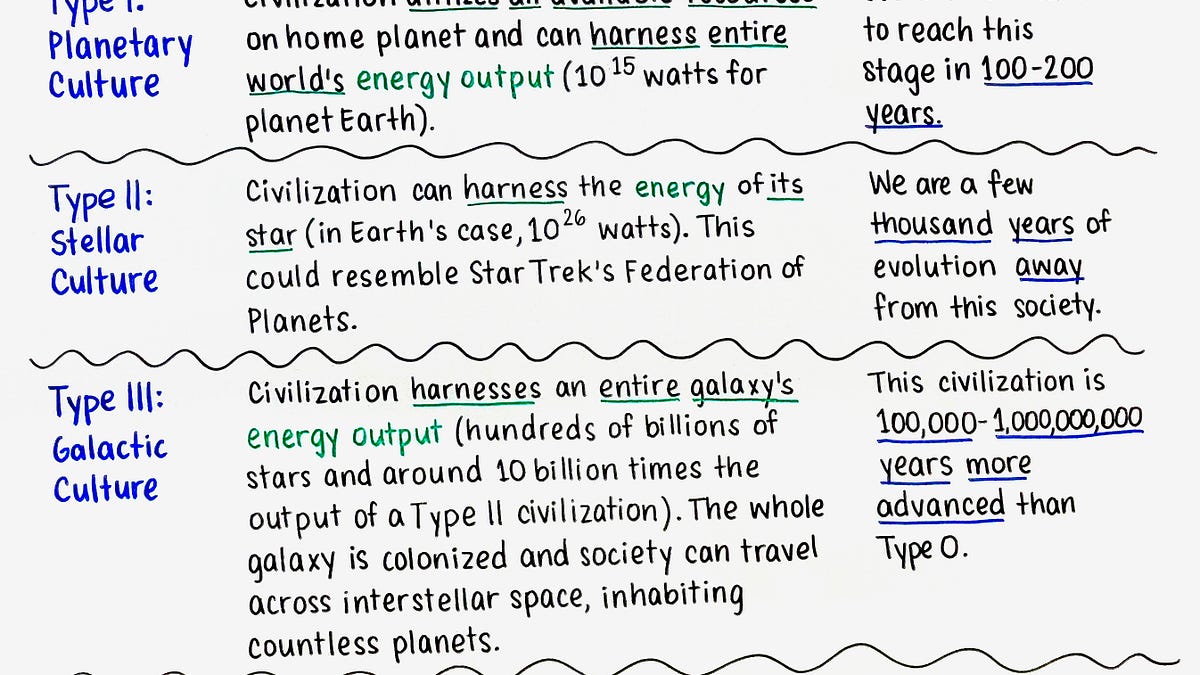 Type I:
Planetary
Culture
Civilization utilizes all available resources
on home planet and can harness entire
world's energy output (10^15 watts for
planet Earth).
to reach this
stage in 100-200
years.
Type II:
Stellar
Culture
Civilization can harness the energy of its
star (in Earth's case, 10^26 watts). This
could resemble Star Trek's Federation of
Planets.
We are a few
thousand years of
evolution away
from this society.
Type III:
Galactic
Culture
Civilization harnesses an entire galaxy's
energy output (hundreds of billions of
stars and around 10 billion times the
output of a Type II civilization). The whole
galaxy is colonized and society can travel
across interstellar space, inhabiting
countless planets.
This civilization is
100,000-1,000,000,000
years more
advanced than
Type 0.